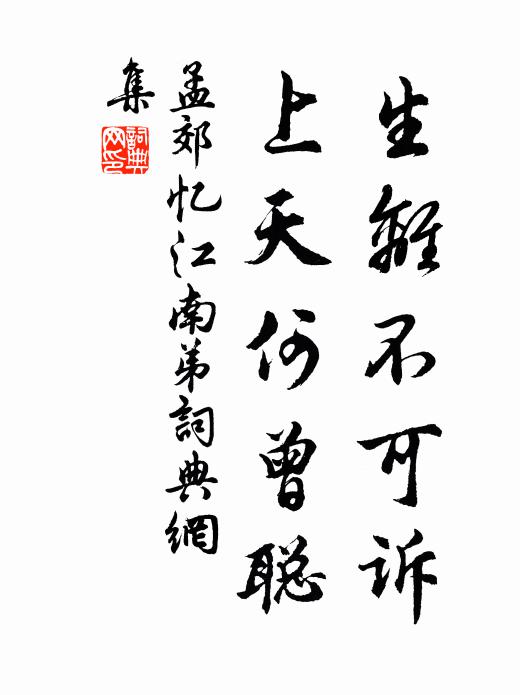 生離不可诉
上天何曾聪
孟郊忆江南弟詞典網
集
詞典
网印